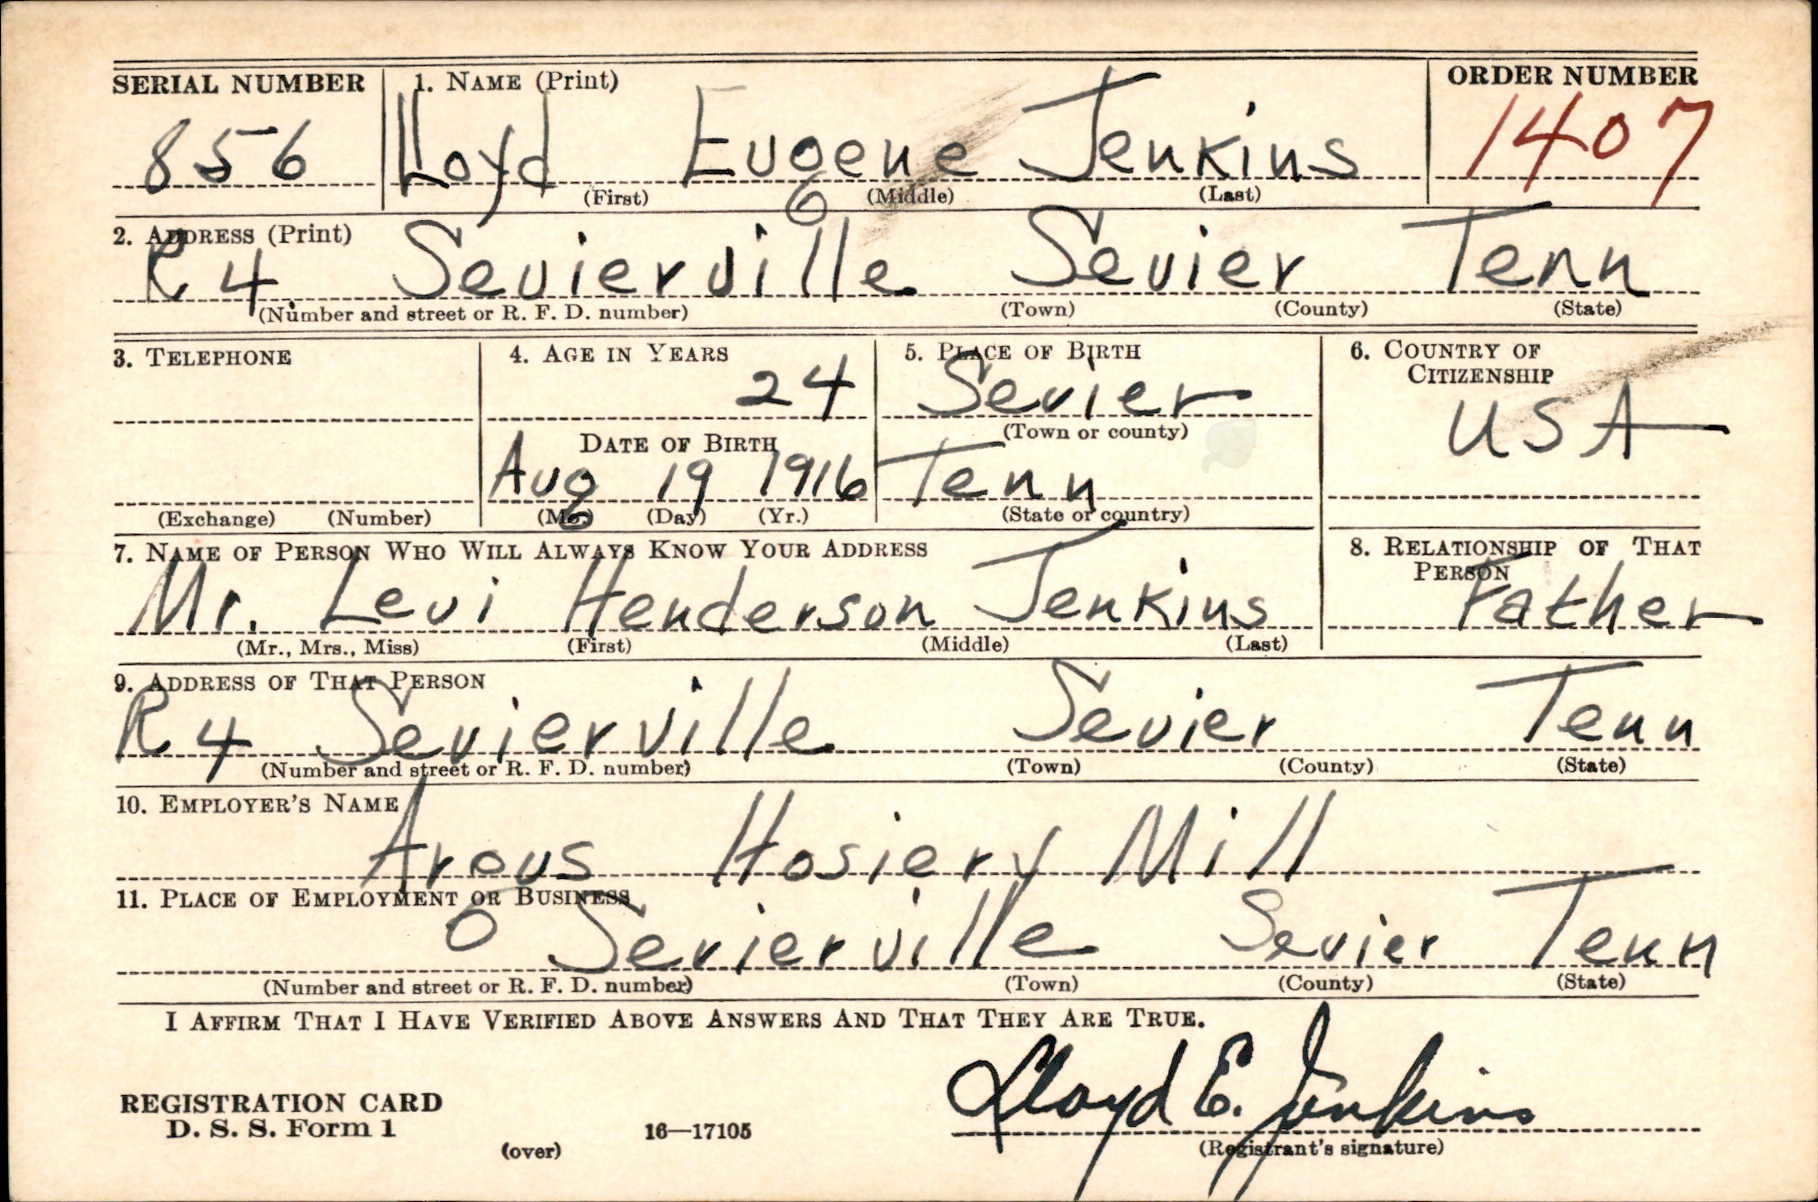 SERIAL NUMBER 1. NAME (Print) ORDER NUMBER
856 Lloyd Eugene Jenkins 1407
(First) (Middle) (Last)
2. ADDRESS (Print)
R 4. Sevierville Sevier Tenn
(Number and street or R. F. D. number) (Town) (County) (State)
3. TELEPHONE 4. AGE IN YEARS 5. PLACE OF BIRTH 6. COUNTRY OF CITIZENSHIP
24 Sevier USA
DATE OF BIRTH (Town or county)
Aug 19 1916 Tenn
(Exchange) (Number) (Mo.) (Day) (Yr.) (State or country)
7. NAME OF PERSON WHO WILL ALWAYS KNOW YOUR ADDRESS 8. RELATIONSHIP OF THAT PERSON
Mr. Levi Henderson Jenkins Father
(Mr., Mrs., Miss) (First) (Middle) (Last)
9. ADDRESS OF THAT PERSON
R 4 Sevierville Sevier Tenn
(Number and street or R. F. D. number) (Town) (County) (State)
10. EMPLOYER'S NAME
Argus Hosiery Mill
11. PLACE OF EMPLOYMENT OR BUSINESS
Sevierville Sevier Tenn
(Number and street or R. F. D. number) (Town) (County) (State)
I AFFIRM THAT I HAVE VERIFIED ABOVE ANSWERS AND THAT THEY ARE TRUE.
Lloyd E. Jenkins
REGISTRATION CARD
D. S. S. Form 1
(over) 16—17105 (Registrant's signature)